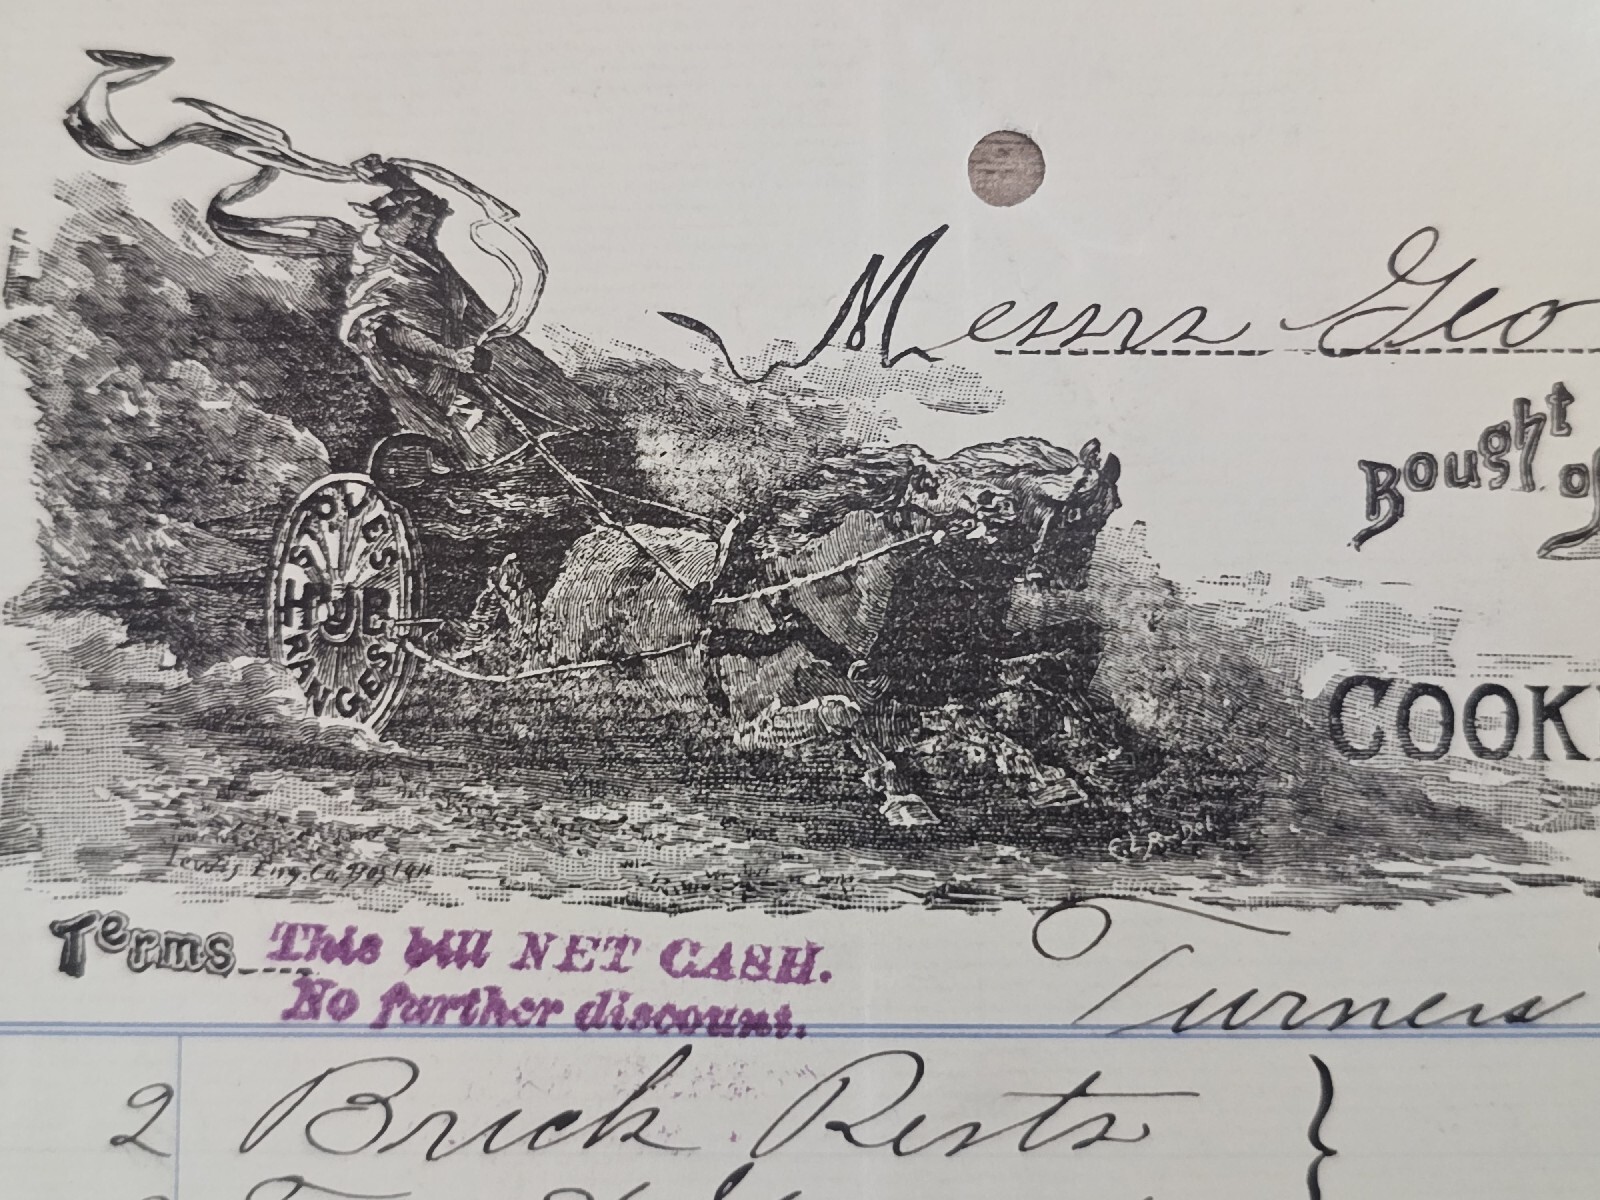 Messrs Geo
Bought of
STOVES
HUB
RANGES
COOK
Lewis Eng. Co. Boston
C.L.R. Del
Terms This bill NET CASH.
No further discount.
Turners
2 Brick Rests }